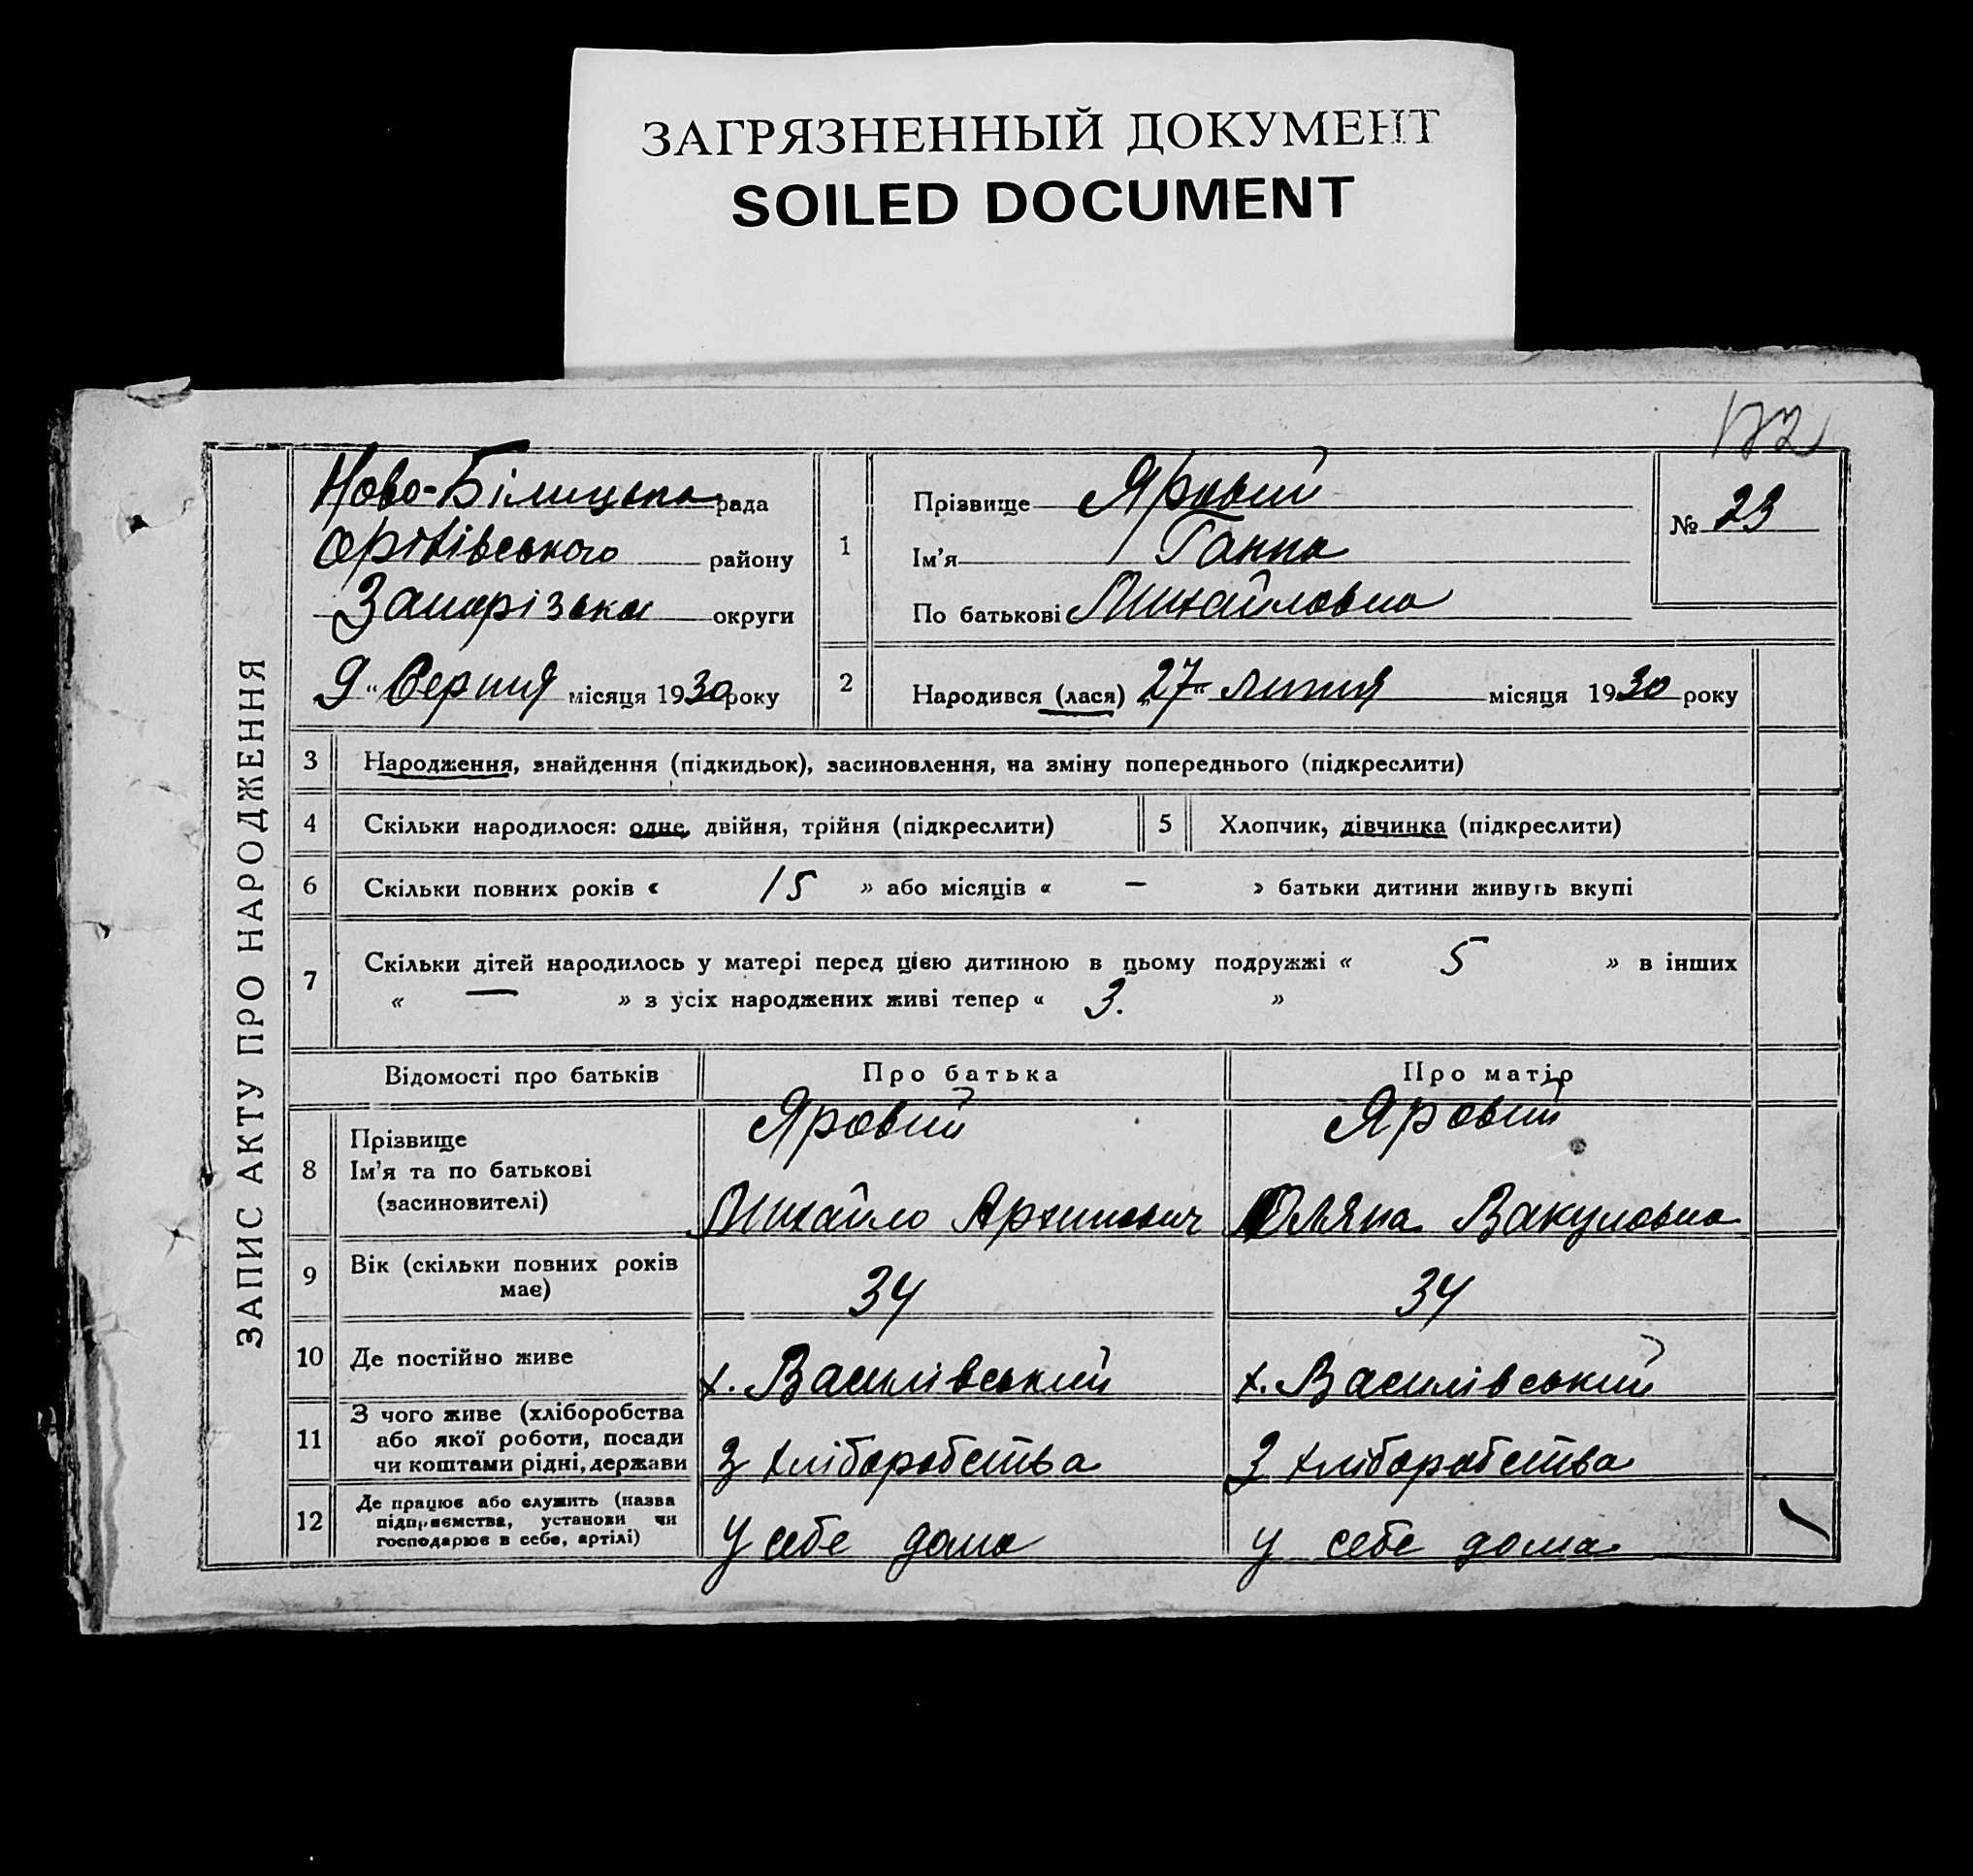 ЗАГРЯЗНЕННЫЙ ДОКУМЕНТ
SOILED DOCUMENT
172
ЗАПИС АКТУ ПРО НАРОДЖЕННЯ
Ново-Білицька рада
Оріхівського району
Запорізька округи
9 " Серпня місяця 1930 року
1
Прізвище Яровий
Ім'я Ганна
По батькові Михайловна
№ 23
2 Народився (лася) „27" липня місяця 1930 року
3 Народження, знайдення (підкидьок), засиновлення, на зміну попереднього (підкреслити)
4 Скільки народилося: одне, двійня, трійня (підкреслити) 5 Хлопчик, дівчинка (підкреслити)
6 Скільки повних років « 15 » або місяців « — » батьки дитини живуть вкупі
7 Скільки дітей народилось у матері перед цією дитиною в цьому подружжі « 5 » в інших
« — » з усіх народжених живі тепер « 3. »
Відомості про батьків Про батька Про матір
8 Прізвище Яровий Яровий
Ім'я та по батькові
(засиновителі) Михайло Архипович Уляна Вакуловна
9 Вік (скільки повних років
має) 34 34
10 Де постійно живе х. Василівський х. Василівський
11 З чого живе (хліборобства
або якої роботи, посади
чи коштами рідні, держави З хліборобства З хліборобства
12 Де працює або служить (назва
підприємства, установи чи
господарює в себе, артілі) У себе дома У себе дома